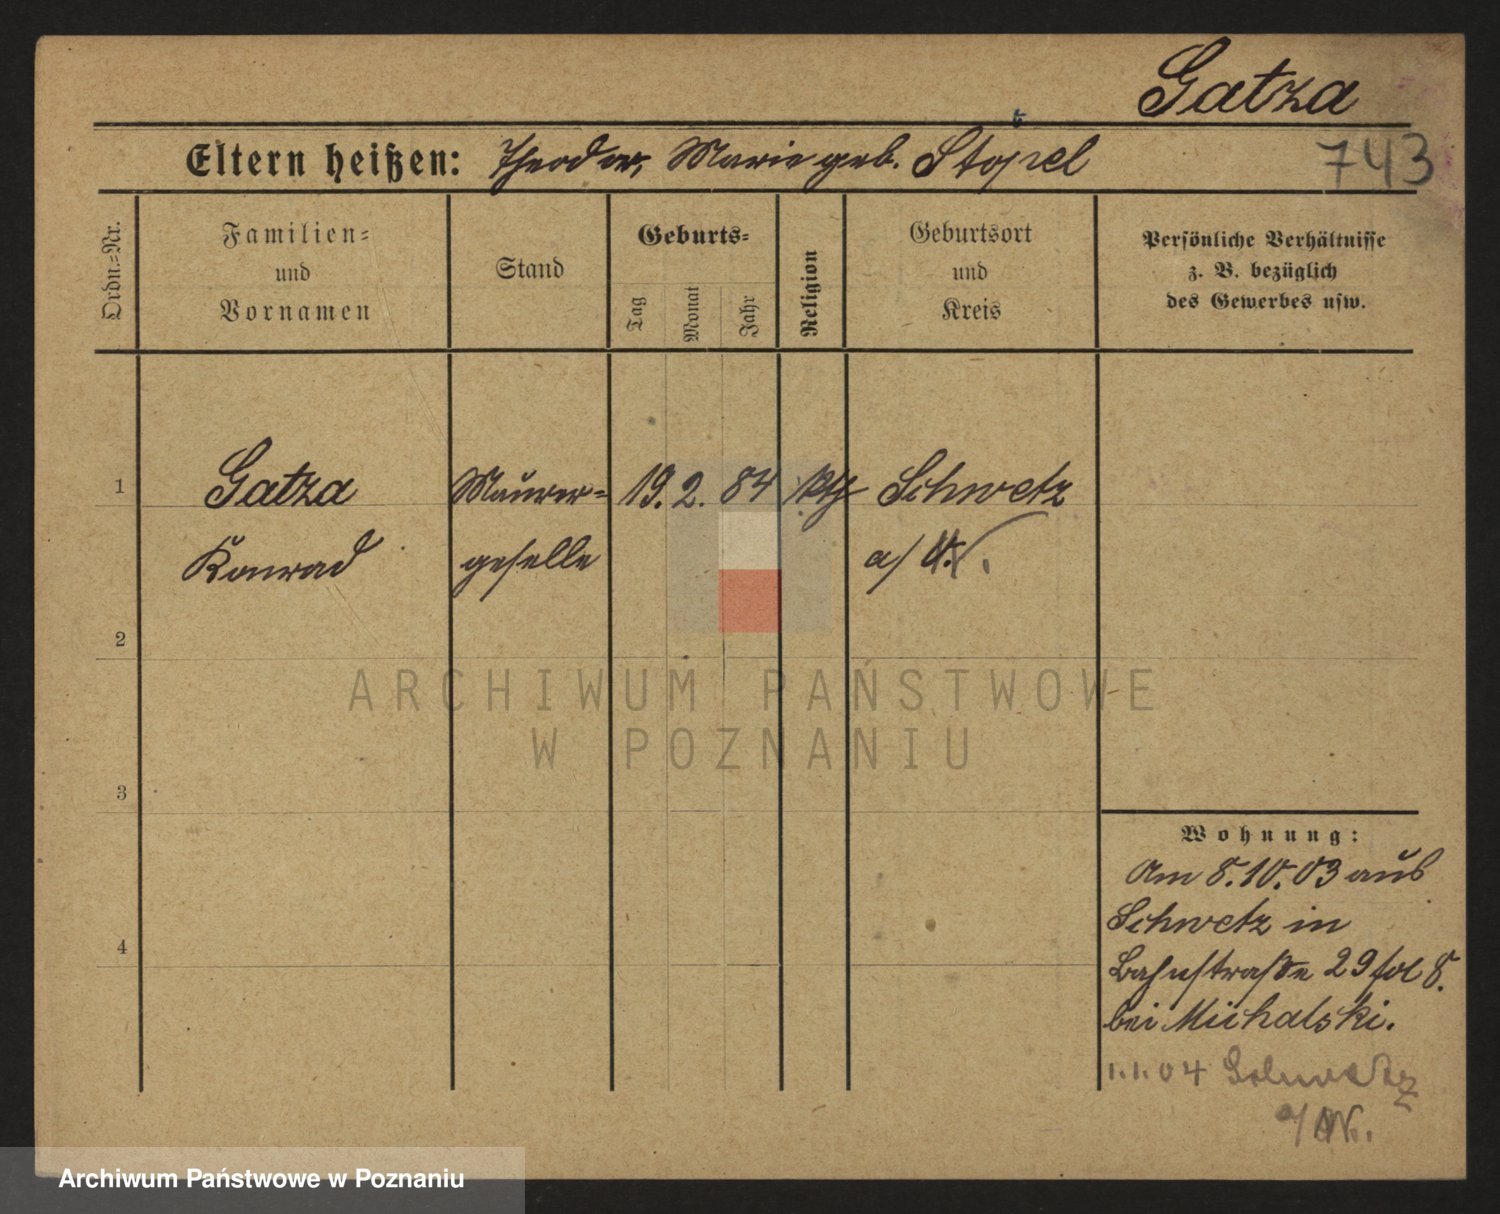 Gatza
Eltern heißen: Theodor, Marie geb. Stopel
743
Ordn.-Nr.
Familien-
und
Vornamen
Stand
Geburts-
Tag
Monat
Jahr
Religion
Geburtsort
und
Kreis
Persönliche Verhältnisse
z. B. bezüglich
des Gewerbes usw.
1 Gatza Maurer- 19. 2. 84 kth Schwetz
Konrad geselle a/W.
2
ARCHIWUM PAŃSTWOWE
W POZNANIU
3
Wohnung:
Am 8.10.03 aus
Schwetz in
4
Bahnstraße 29 fol 8.
bei Michalski.
1.1.04 Schwetz
a/W.
Archiwum Państwowe w Poznaniu